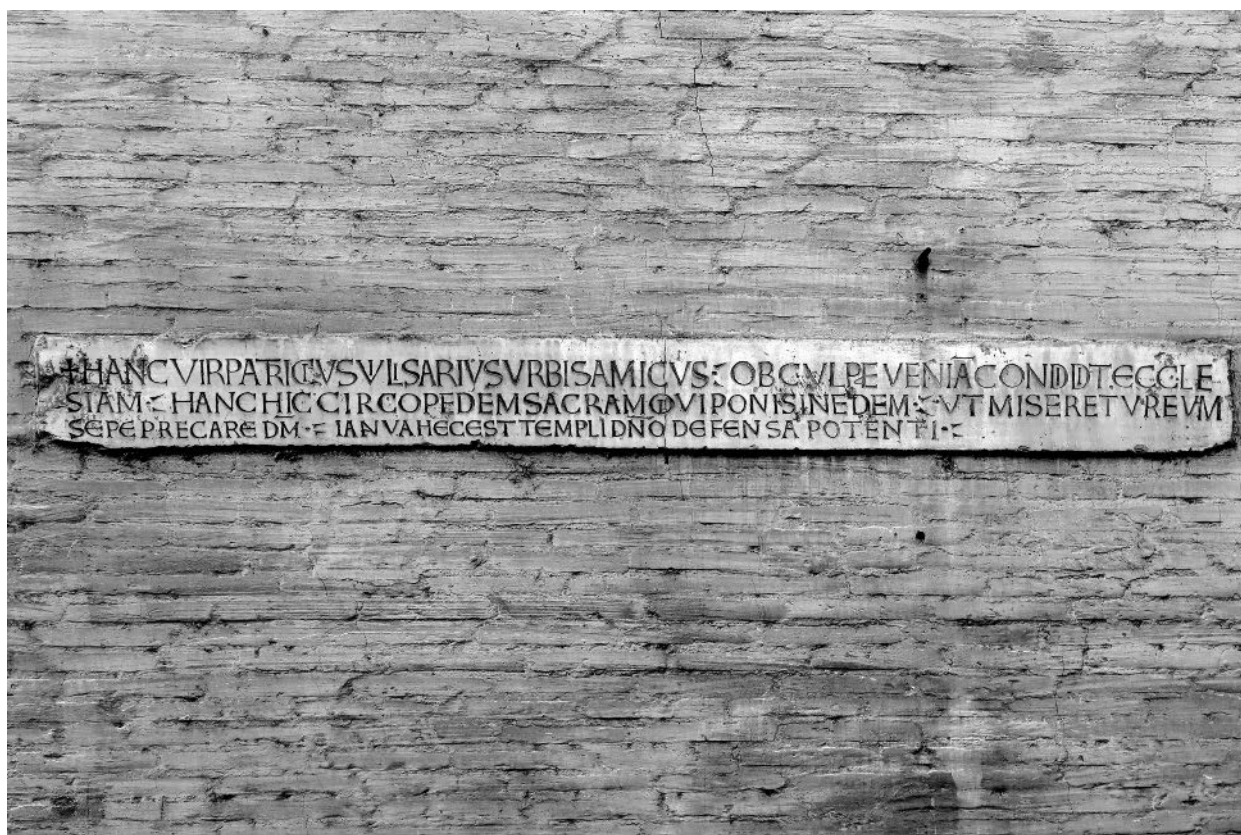 ✝HANCVIRPATRICIVSVVLISARIVSVRBISAMICVS⁖OBCVLPEVENIĀCONDIDITECCLE
SIAM⁖HANCHICCIRCOPEDEMSACRAMQVIPONISINEDEM⁖VTMISERETVREVM
SEPEPRECAREDM̄⁖IANVAHECESTTEMPLIDNŌDEFENSAPOTENTI⁖